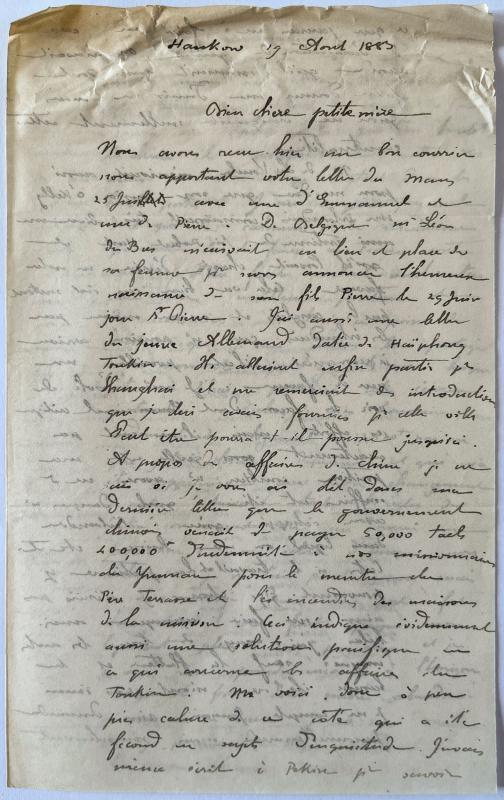 Hankow 19 Aout 1883
Bien chere petite mère
Nous avons recu hier un bon courrier
nous apportant votre lettre du mans
25 Juillet avec une d'Emmanuel et
une de Pierre. De Belgique Mr Léon
du Bus m'écrivait en lieu et place de
sa femme pr nous annoncer l'heureuse
naissance de son fils Pierre le 29 Juin
jour St Pierre. J'ai aussi une lettre
du jeune Allemand datée de Haïphong
Tonkin. Ils allaient enfin partir pr
Shanghai et me remerciait des introductions
que je lui avais fournies pr cette ville
Peut être pourra t il pousser jusqu'ici
A propos des affaires de Chine je ne
sais si je vous ai dit dans ma
dernière lettre que le gouvernement
chinois venait de payer 50,000 taels
400,000 d'indemnité à nos missionnaires
du Yunnan pour le meurtre du
Père Terrasse et les incendies des maisons
de la mission. Ceci indique évidemment
aussi une solution pacifique en
ce qui concerne les affaires du
Tonkin. Me voici donc à peu
près calme de ce coté qui a été
fécond en sujets d'inquiétude. J'avais
même écrit à Pekin pr savoir